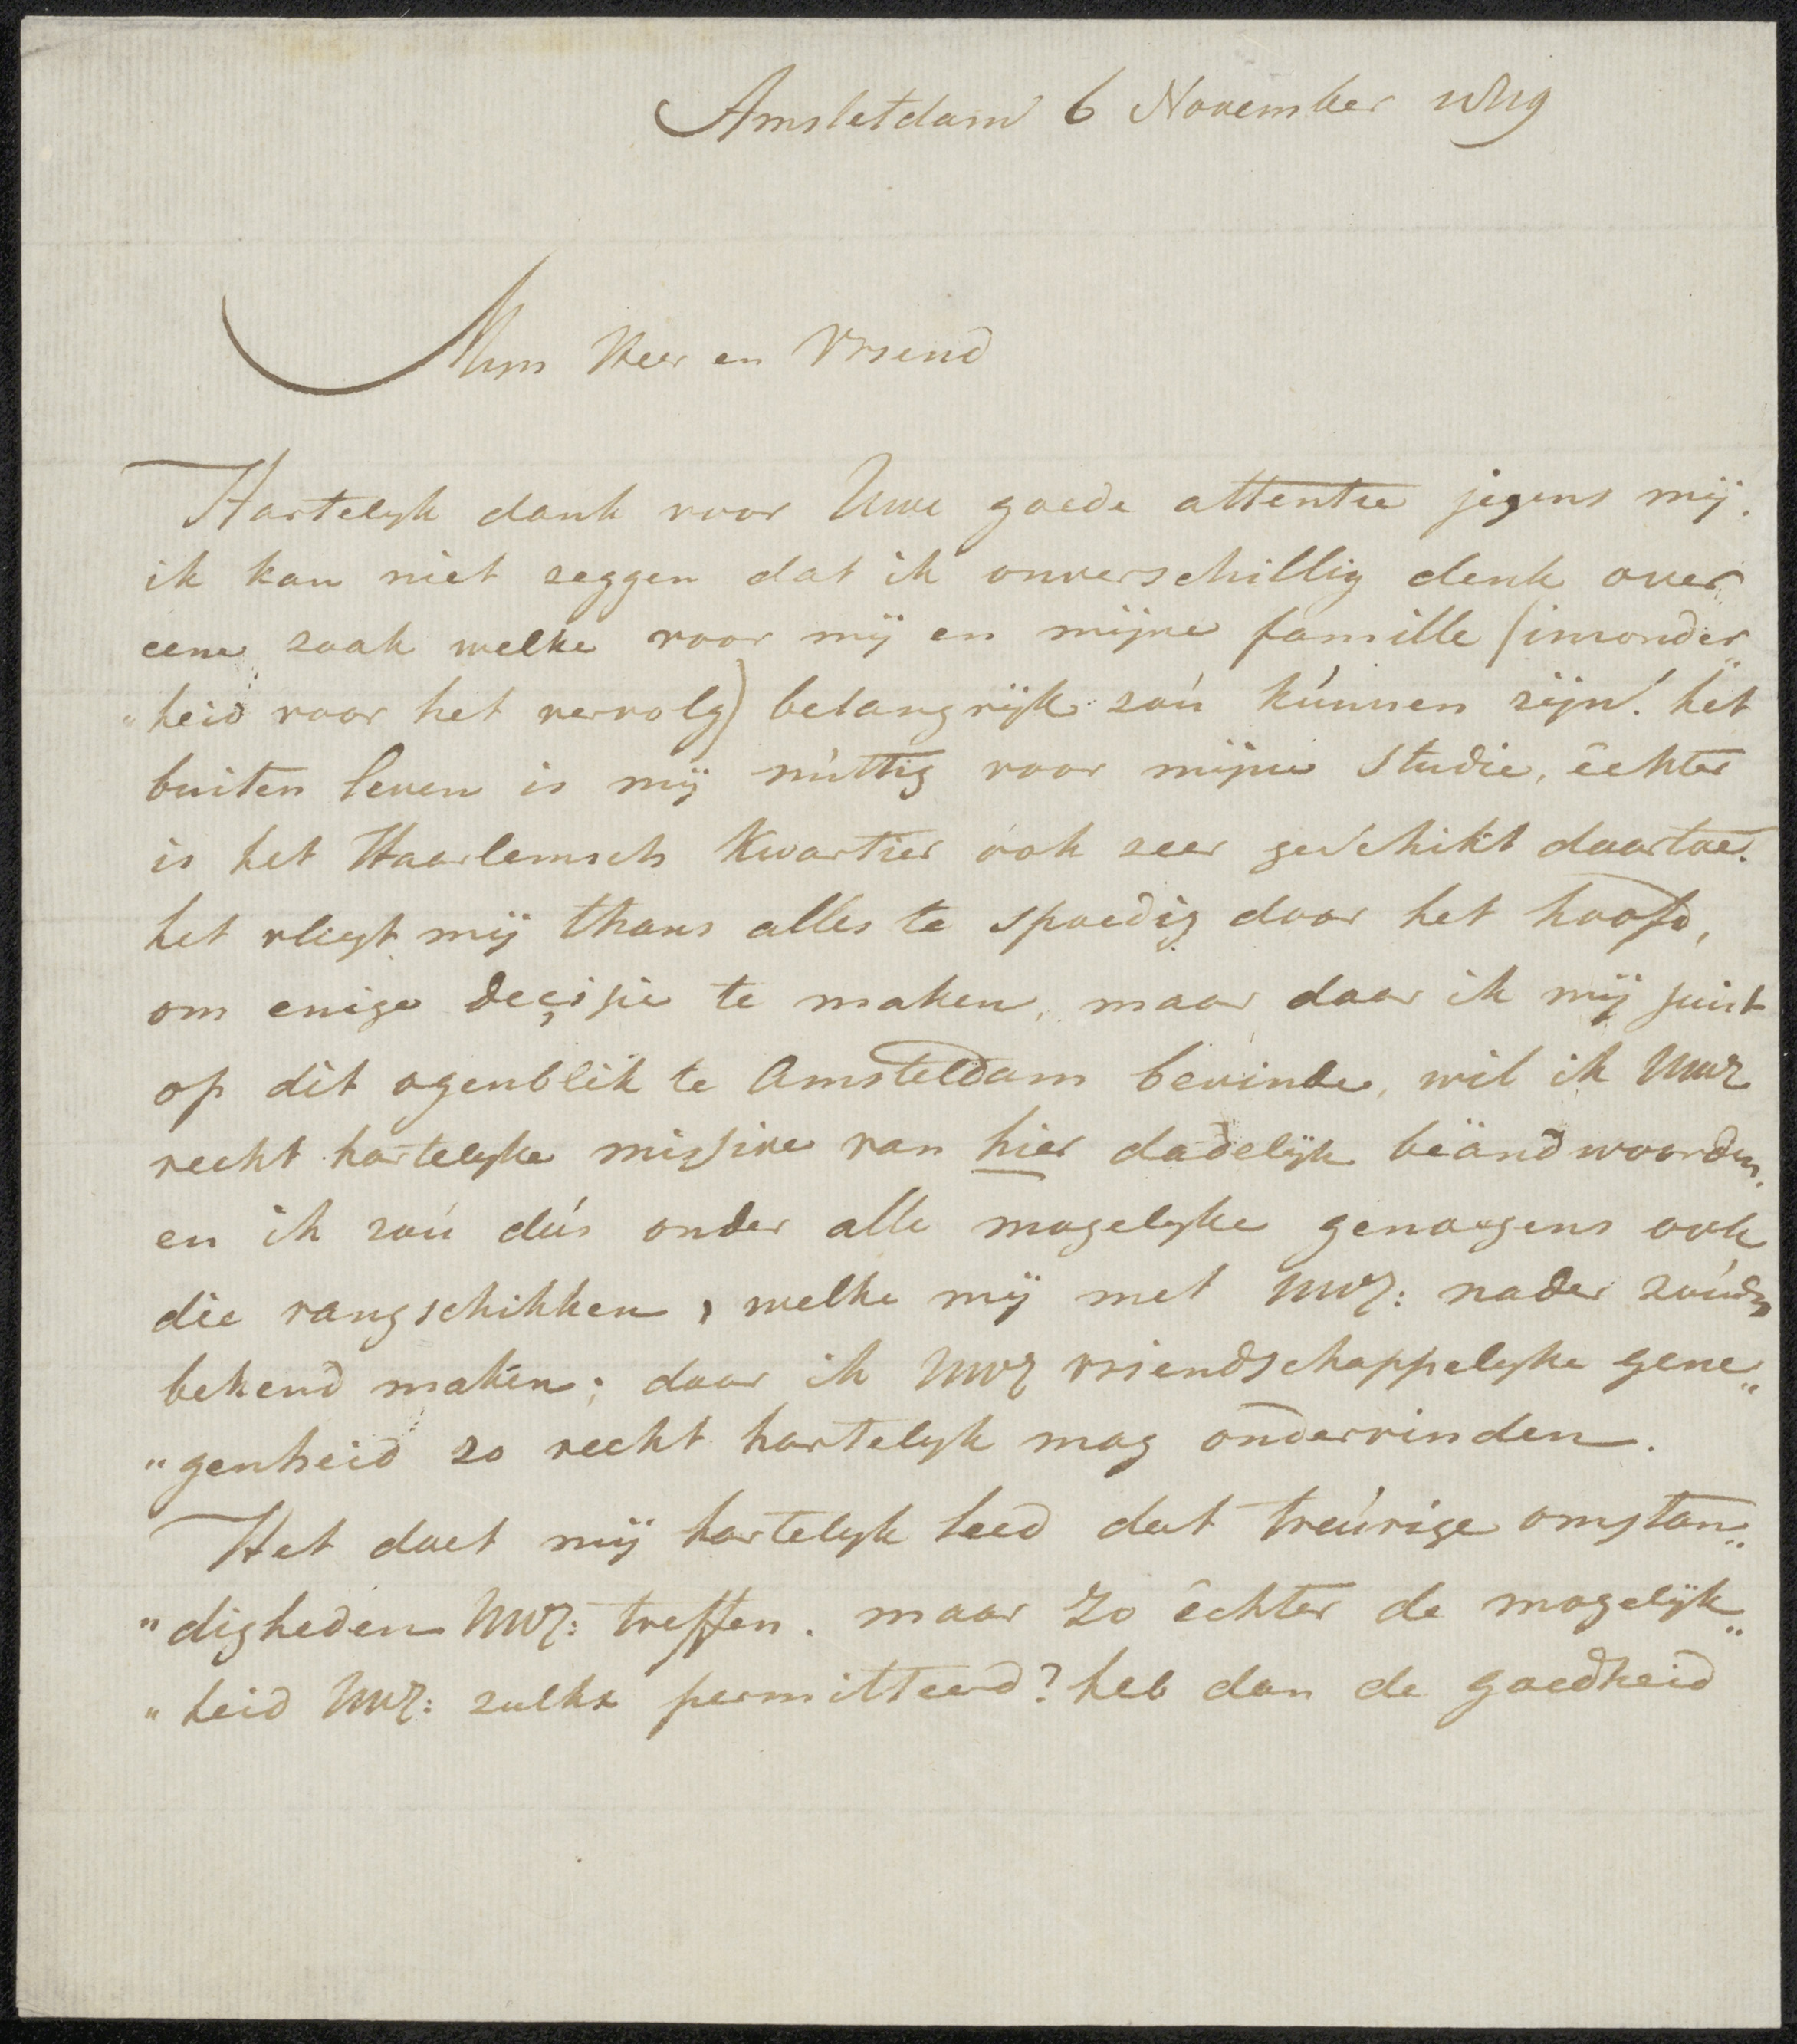 Amsteldam 6 November 1819
Mijn Heer en Vriend
Hartelyk dank voor Uwe goede attentie jegens mij.
ik kan niet zeggen dat ik onverschillig denk over
eene zaak welke voor mij en mijne famille (inzonder„
„heid voor het vervolg) belangrijk zoú kúnnen zijn. het
buiten leven is mij núttig voor mijne Studie, êchter
is het Haarlemsch Kwartier ook zeer geschikt daartoe.
het vliegt mij thans alles te spoedig door het hoofd,
om enige deçisie te maken, maar daar ik mij juist
op dit ogenblik te Amsteldam bevinde, wil ik UwE
recht hartelyke missive van hier dadelijk beändwoorden.
en ik zoú dús onder alle mogelyke genoegens ook
die rangschikken, welke mij met UwE: nader zoúden
bekend maken; daar ik UwE vriendschappelyke gene„
„genheid zo recht hartelyk mag ondervinden.
Het doet mij hartelyk leed dat treúrige omstan„
„digheden UwE: treffen. maar zo êchter de mogelijk„
„heid UwE: zulks permitteerd? heb dan de goedheid